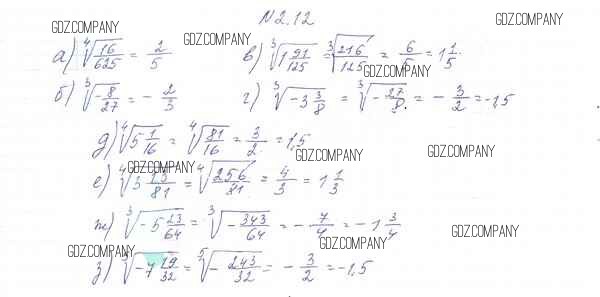 N 2.12
GDZ.COMPANY GDZ.COMPANY GDZ.COMPANY
а) ⁴√(16/625) = 2/5 в) ³√(1 91/125) = ³√(216/125) = 6/5 = 1 1/5
GDZ.COMPANY
б) ³√(-8/27) = - 2/3 г) ³√(-3 3/8) = ³√(-27/8) = - 3/2 = -1,5
д) ⁴√(5 1/16) = ⁴√(81/16) = 3/2 = 1,5
GDZ.COMPANY GDZ.COMPANY GDZ.COMPANY
е) ⁴√(3 13/81) = ⁴√(256/81) = 4/3 = 1 1/3
ж) ³√(-5 23/64) = ³√(-343/64) = - 7/4 = -1 3/4
GDZ.COMPANY GDZ.COMPANY GDZ.COMPANY
з) ⁵√(-7 19/32) = ⁵√(-243/32) = - 3/2 = -1,5